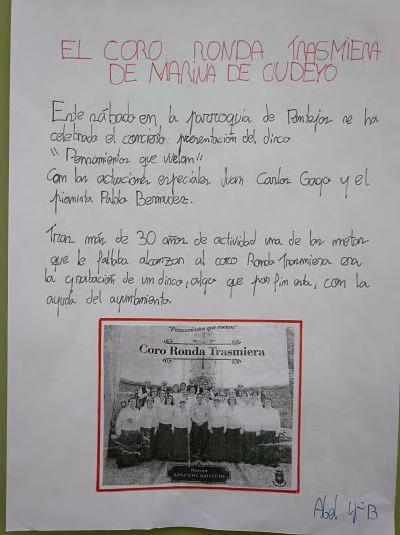 EL CORO RONDA TRASMIERA
DE MARINA DE CUDEYO
Este sábado en la parroquia de Pontejos se ha
celebrado el concierto presentación del disco
"Pensamientos que vuelan"
Con las actuaciones especiales Juan Carlos Gago y el
pianista Pablo Bermudez.
Tras más de 30 años de actividad una de las metas
que le faltaba alcanzar al coro Ronda Trasmiera era
la grabación de un disco, algo que por fin esta, con la
ayuda del ayuntamiento.
"Pensamientos que vuelan"
Coro Ronda Trasmiera
Director
Abel 4º B